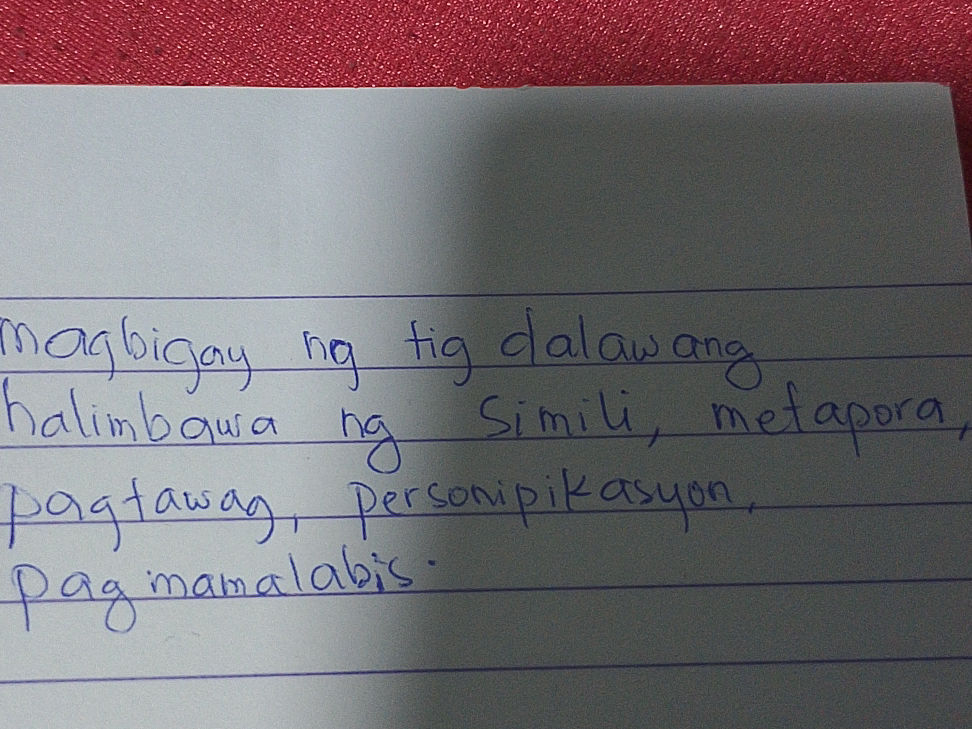 magbigay ng tig dalawang
halimbawa ng Simili, metapora,
pagtawag, personipikasyon,
pag mamalabis.